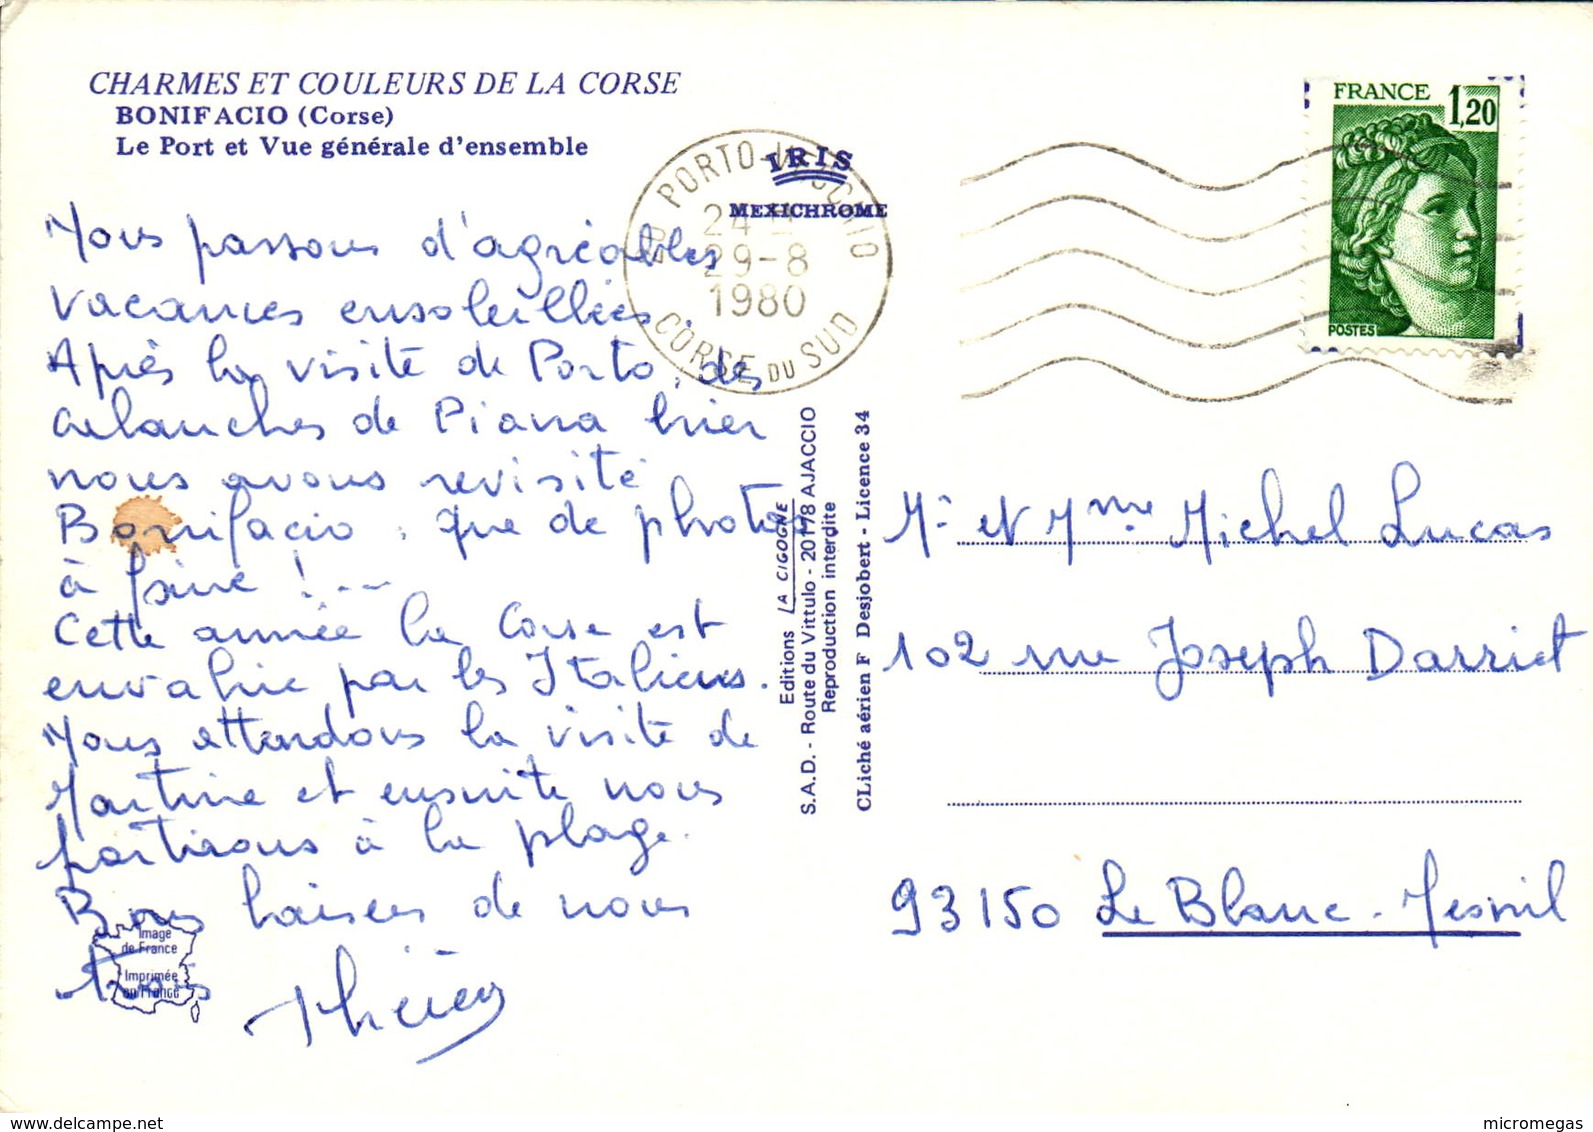 CHARMES ET COULEURS DE LA CORSE
BONIFACIO (Corse)
Le Port et Vue générale d'ensemble
IRIS
MEXICHROME
PORTO-VECCHIO
24 H
29-8
1980
CORSE DU SUD
FRANCE 1,20
POSTES
Nous passons d'agréables
vacances ensoleillées.
Après la visite de Porto, des
calanches de Piana hier
nous avons revisité
Bonifacio, que de photos
à faire !...
Cette année la Corse est
envahie par les Italiens.
Nous attendons la visite de
Martine et ensuite nous
partirons à la plage.
Bons baisers de nous
trois
Image
de France
Imprimée
en France
Editions LA CIGOGNE
S.A.D. - Route du Vittulo - 20178 AJACCIO
Reproduction interdite
CLiché aérien F Desjobert - Licence 34
Mr et Mme Michel Lucas
102 rue Joseph Darriet
93150 Le Blanc-Mesnil
delcampe.net
micromegas